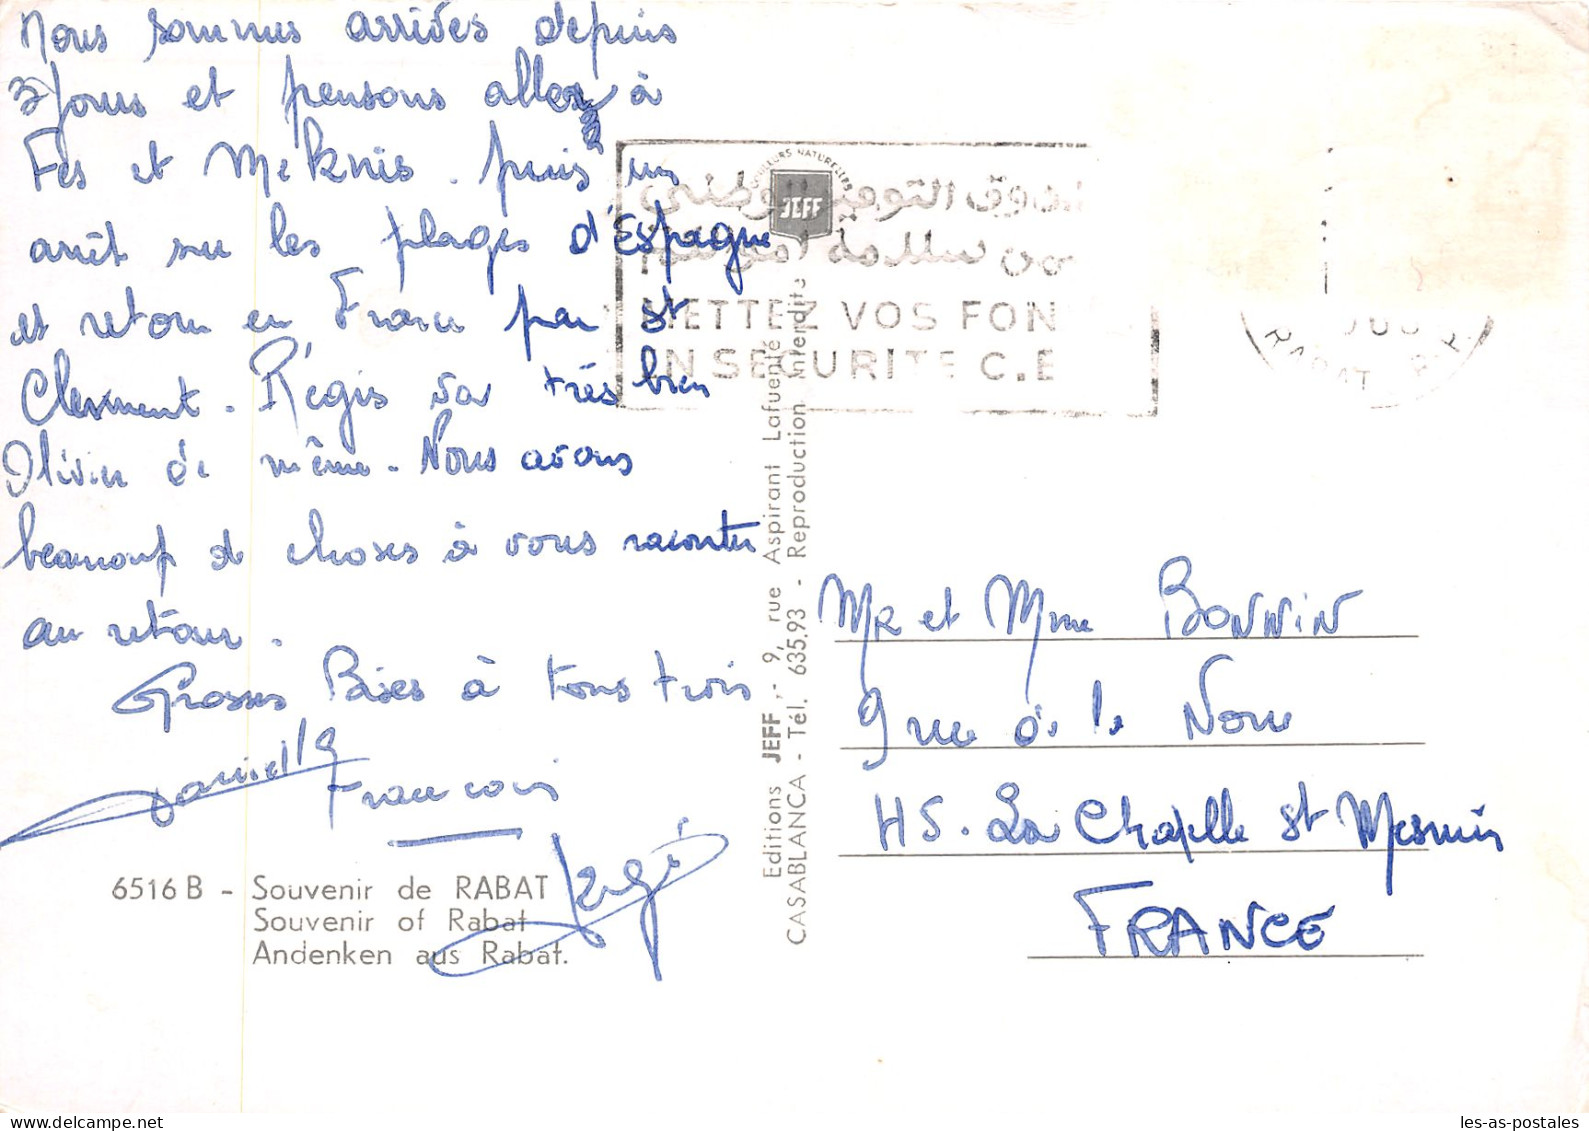 Nous sommes arrivés depuis
3 jours et pensons aller à
Fes et Meknis. puis un
arrêt sur les plages d'Espagne
et retour en France par St
Clermont. Régis va très bien
Olivier de même. Nous avons
beaucoup de choses à vous raconter
au retour.
Grosses Bises à tous trois
Danielle
Francois
Régis
6516 B - Souvenir de RABAT
Souvenir of Rabat
Andenken aus Rabat.
COULEURS NATURELLES
JEFF
صندوق التوفير الوطني
METTEZ VOS FON
EN SECURITE C.E
RABAT R.P
Editions JEFF - 9, rue Aspirant Lafuente
CASABLANCA - Tél. 635.93 - Reproduction interdite
Mr et Mme BONNIN
9 rue de la Noue
45. La Chapelle St Mesmin
FRANCE
les-as-postales